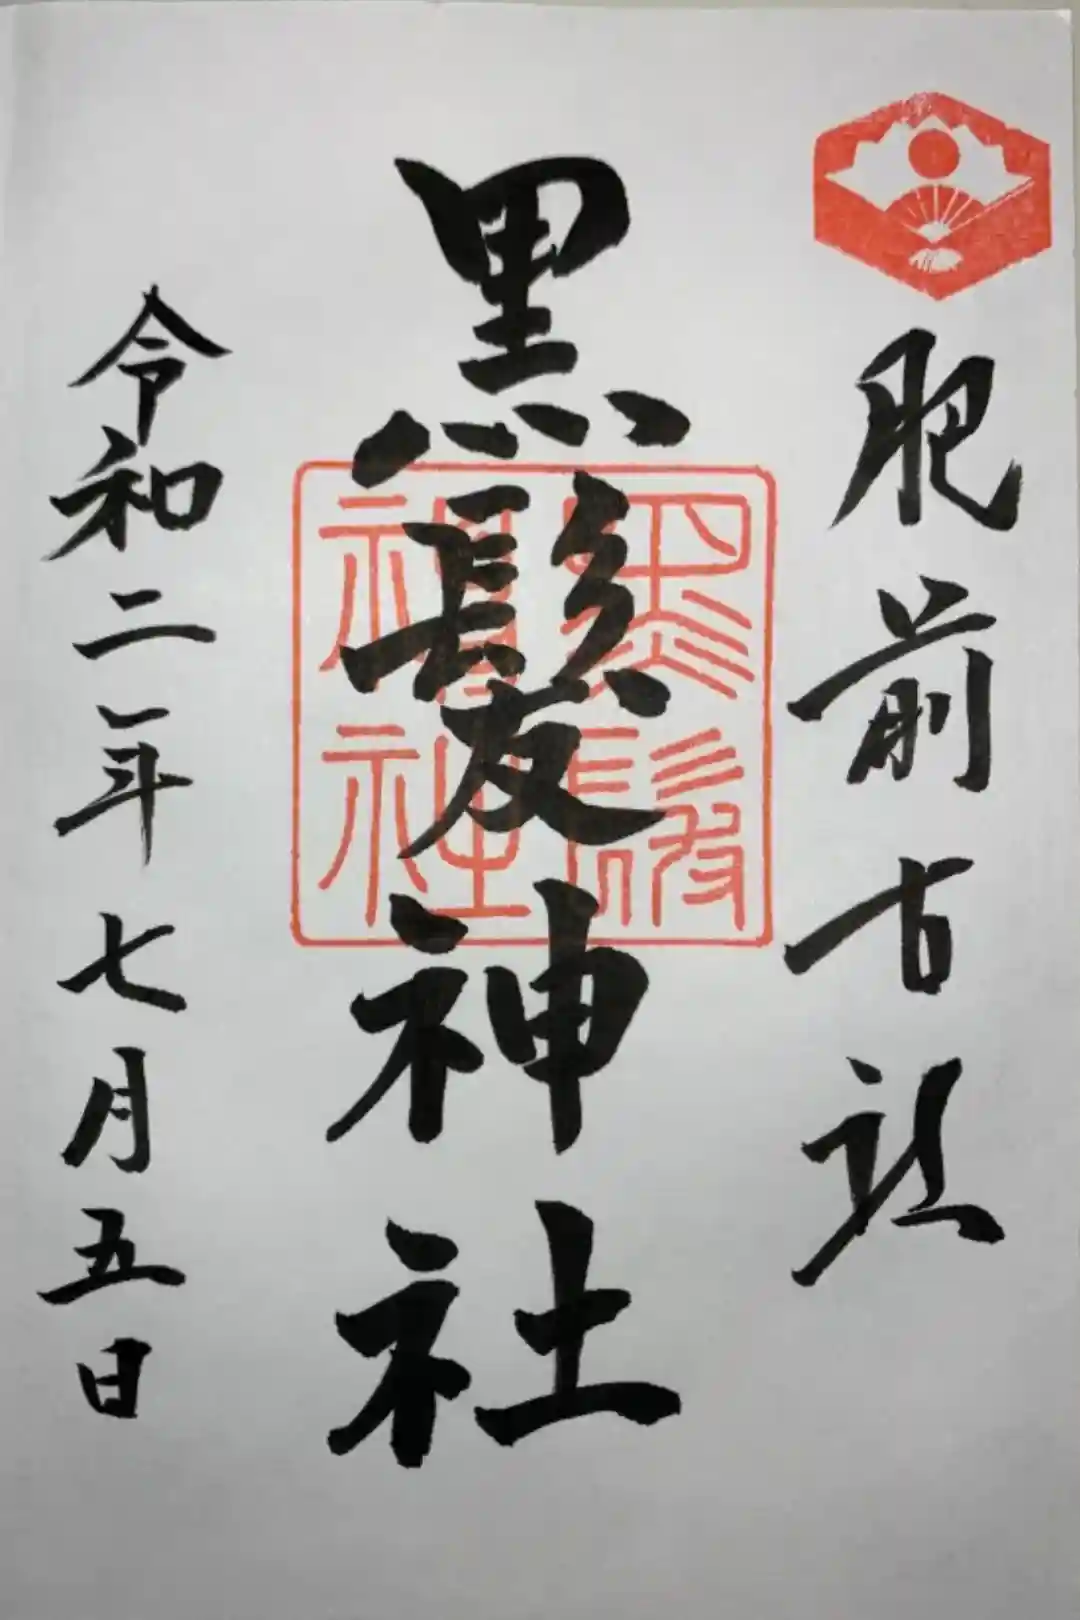 肥前古社
黒髪神社
黒髪
神社
令和二年七月五日